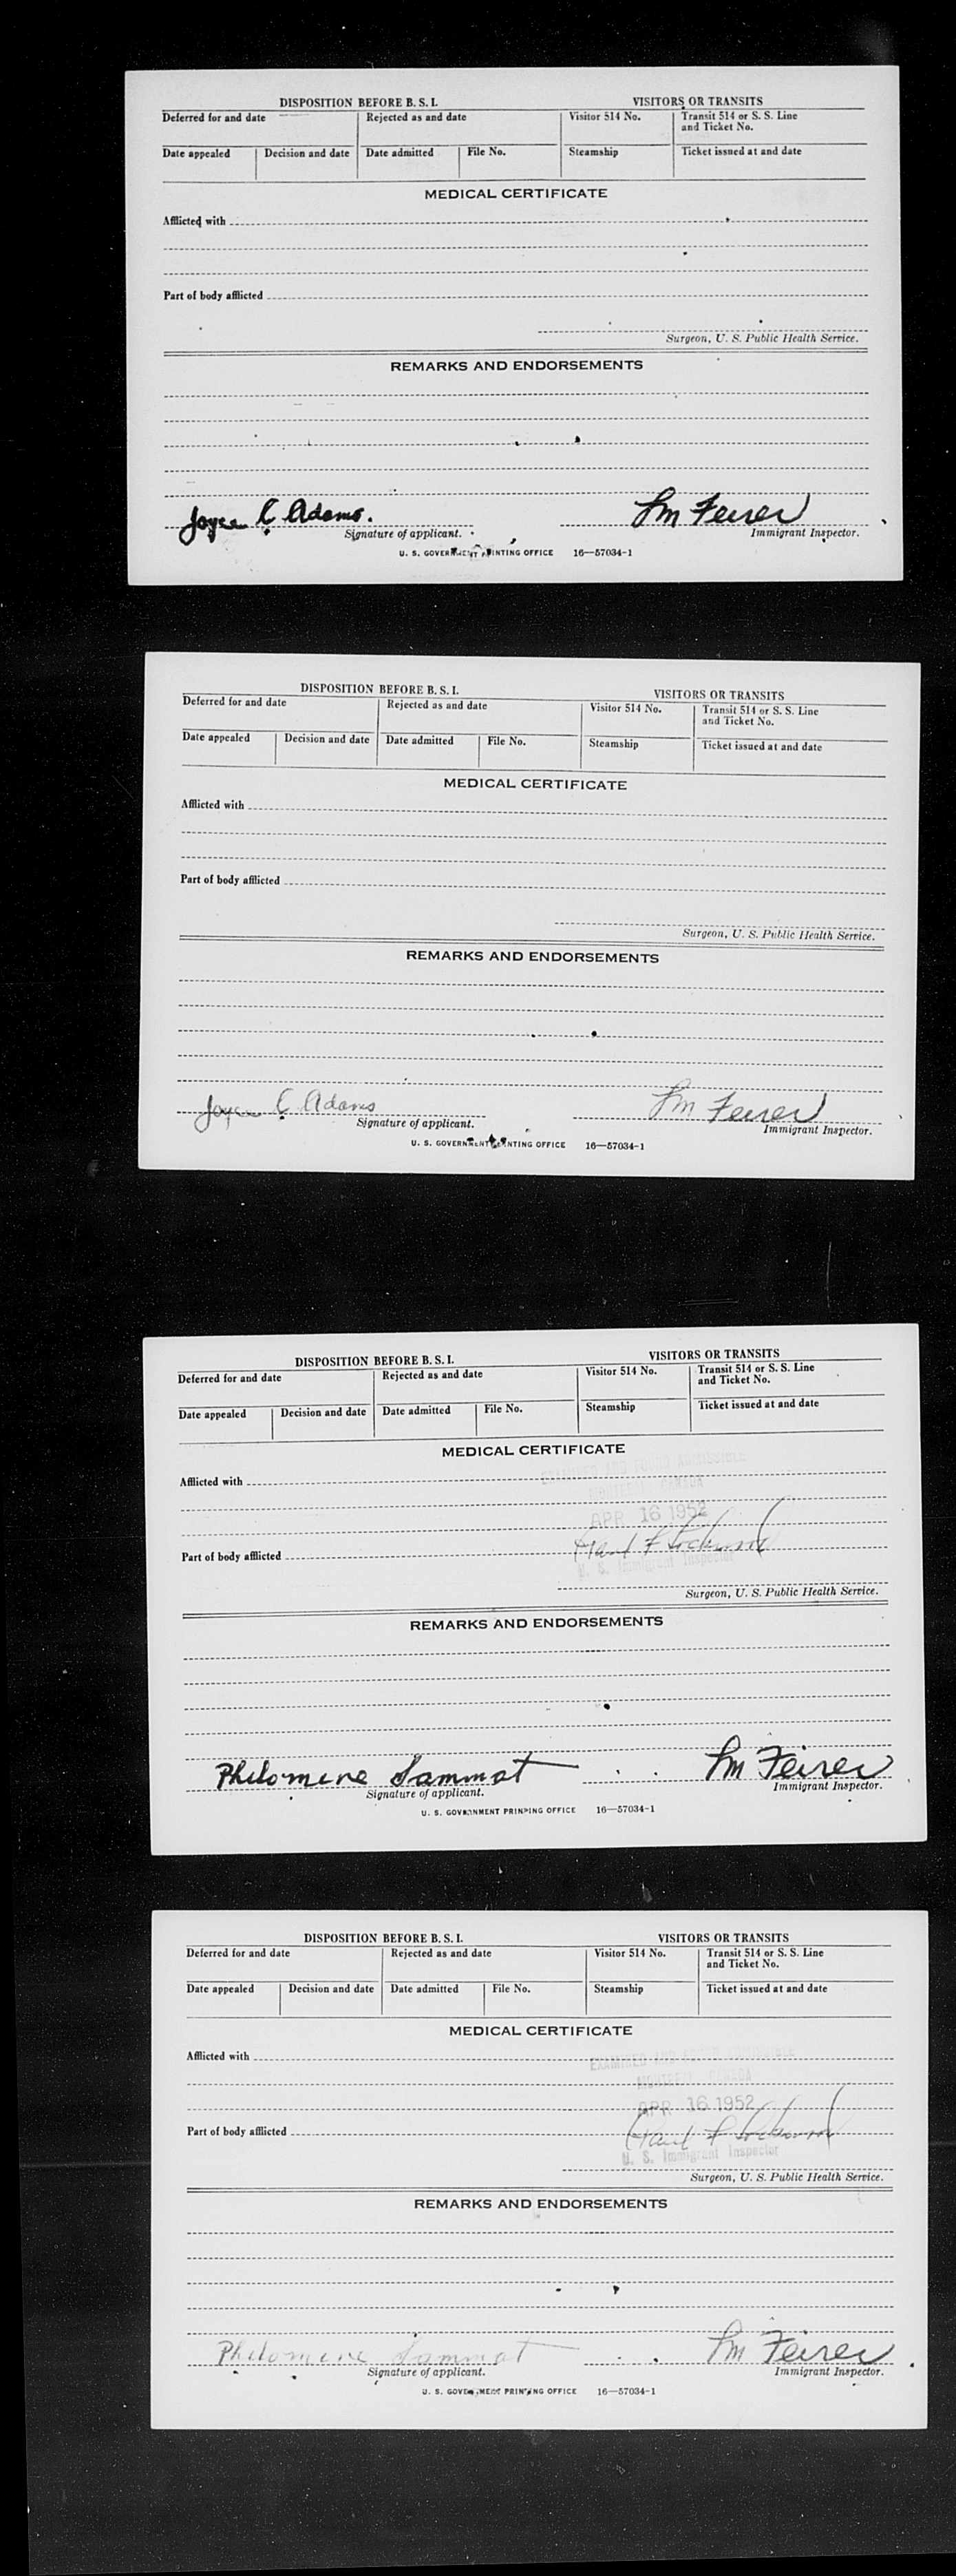 DISPOSITION BEFORE B. S. I. VISITORS OR TRANSITS
Deferred for and date Rejected as and date Visitor 514 No. Transit 514 or S. S. Line
and Ticket No.
Date appealed Decision and date Date admitted File No. Steamship Ticket issued at and date
MEDICAL CERTIFICATE
Afflicted with
Part of body afflicted
Surgeon, U. S. Public Health Service.
REMARKS AND ENDORSEMENTS
Joyce C Adams.
Signature of applicant. Immigrant Inspector.
U. S. GOVERNMENT PRINTING OFFICE 16—57034-1
DISPOSITION BEFORE B. S. I. VISITORS OR TRANSITS
Deferred for and date Rejected as and date Visitor 514 No. Transit 514 or S. S. Line
and Ticket No.
Date appealed Decision and date Date admitted File No. Steamship Ticket issued at and date
MEDICAL CERTIFICATE
Afflicted with
Part of body afflicted
Surgeon, U. S. Public Health Service.
REMARKS AND ENDORSEMENTS
Joyce C Adams
Signature of applicant. Immigrant Inspector.
U. S. GOVERNMENT PRINTING OFFICE 16—57034-1
DISPOSITION BEFORE B. S. I. VISITORS OR TRANSITS
Deferred for and date Rejected as and date Visitor 514 No. Transit 514 or S. S. Line
and Ticket No.
Date appealed Decision and date Date admitted File No. Steamship Ticket issued at and date
MEDICAL CERTIFICATE
EXAMINED AND FOUND ADMISSIBLE
Afflicted with
MONTREAL CANADA
APR 16 1952
Part of body afflicted
U. S. Immigrant Inspector
Surgeon, U. S. Public Health Service.
REMARKS AND ENDORSEMENTS
Philomene Sammat
Signature of applicant. Immigrant Inspector.
U. S. GOVERNMENT PRINTING OFFICE 16—57034-1
DISPOSITION BEFORE B. S. I. VISITORS OR TRANSITS
Deferred for and date Rejected as and date Visitor 514 No. Transit 514 or S. S. Line
and Ticket No.
Date appealed Decision and date Date admitted File No. Steamship Ticket issued at and date
MEDICAL CERTIFICATE
Afflicted with
EXAMINED AND FOUND ADMISSIBLE
MONTREAL CANADA
APR 16 1952
Part of body afflicted
U. S. Immigrant Inspector
Surgeon, U. S. Public Health Service.
REMARKS AND ENDORSEMENTS
Philomene Sammat
Signature of applicant. Immigrant Inspector.
U. S. GOVERNMENT PRINTING OFFICE 16—57034-1